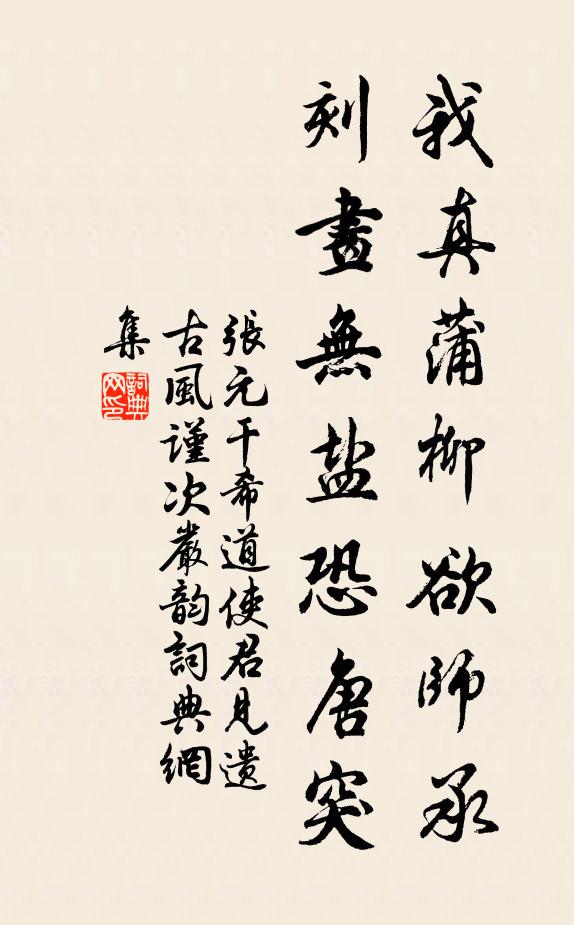 我真蒲柳欲師承
刻畫無盐恐唐突
張元干希道使君見遗
古風謹次嚴韵詞典網
集
詞典
网印